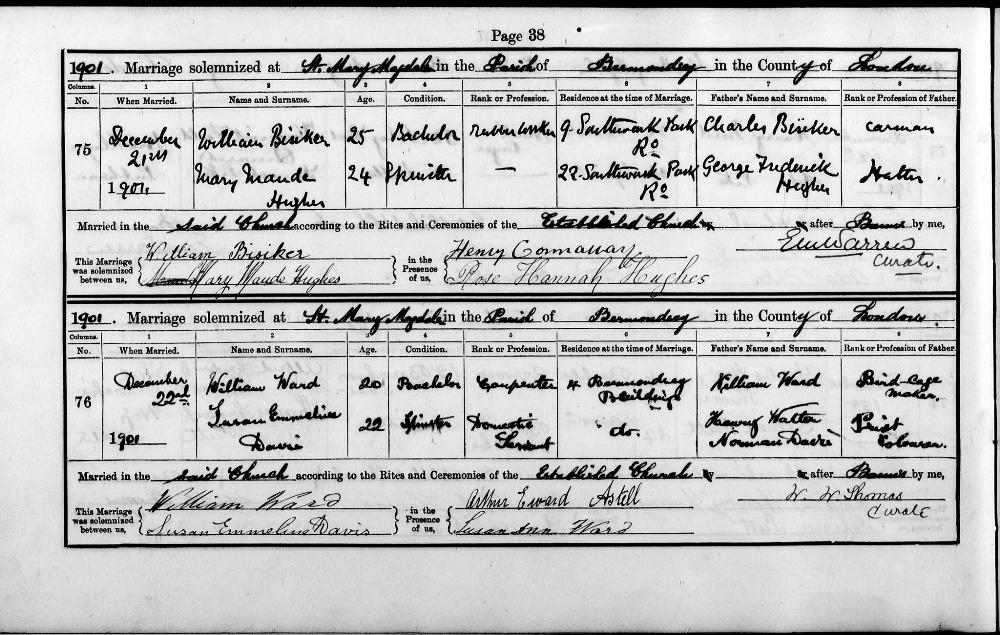 Page 38
1901. Marriage solemnized at St. Mary Magdalen in the Parish of Bermondsey in the County of London
Columns. 1 2 3 4 5 6 7 8
No. When Married. Name and Surname. Age. Condition. Rank or Profession. Residence at the time of Marriage. Father's Name and Surname. Rank or Profession of Father.
75 December 21st 1901 William Bisiker 25 Bachelor 9 Southwark Park Rd Charles Bisiker Carman
Mary Maude Hughes 24 Spinster — 22 Southwark Park Rd George Frederick Hughes Hatter
Married in the said Church according to the Rites and Ceremonies of the Established Church or after Banns by me,
This Marriage was solemnized between us, William Bisiker in the Presence of us, Henry
Mary Maude Hughes Rose Hannah Hughes
Curate.
1901. Marriage solemnized at St. Mary Magdalen in the Parish of Bermondsey in the County of London
Columns. 1 2 3 4 5 6 7 8
No. When Married. Name and Surname. Age. Condition. Rank or Profession. Residence at the time of Marriage. Father's Name and Surname. Rank or Profession of Father.
76 December 22nd 1901 William Ward 20 Bachelor Carpenter 4 Bermondsey Buildings William Ward Bird-Cage maker
Susan Emmeline Davis 22 Spinster Domestic Servant do. Walter Norman Davis Print Colourer
Married in the said Church according to the Rites and Ceremonies of the Established Church by or after Banns by me,
This Marriage was solemnized between us, William Ward in the Presence of us, Arthur Edward Astell W. W. Thomas
Susan Emmeline Davis Susan Ann Ward Curate